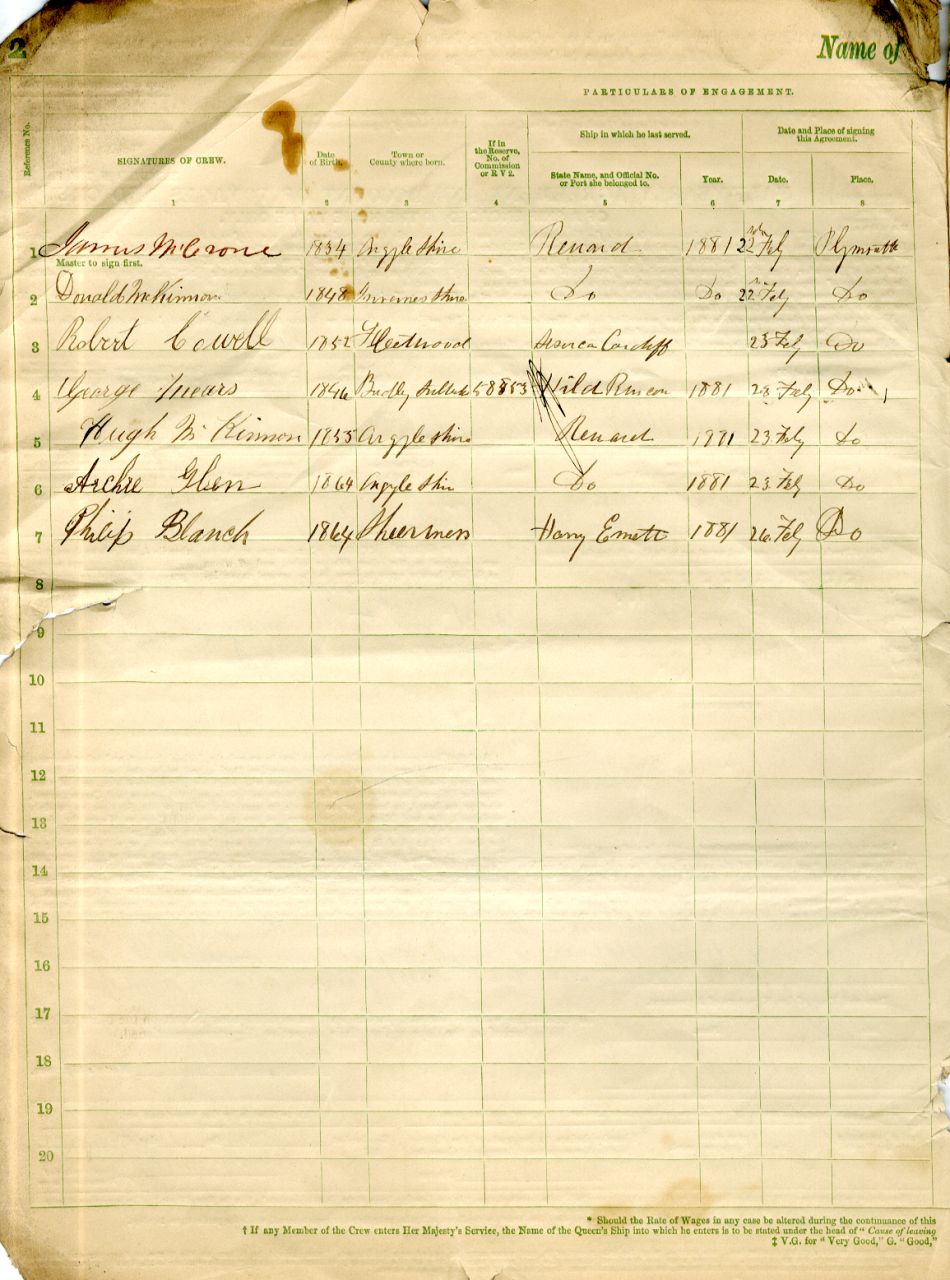 2
Name of
PARTICULARS OF ENGAGEMENT.
Reference No.
SIGNATURES OF CREW.
Date of Birth.
Town or County where born.
If in the Reserve, No. of Commission or R V 2.
Ship in which he last served.
State Name, and Official No. or Port she belonged to.
Year.
Date and Place of signing this Agreement.
Date.
Place.
1 2 3 4 5 6 7 8
1 James McCrone 1834 Argyleshire Renard 1881 22 Feby Plymouth
Master to sign first.
2 Donald McKinnon 1848 Invernesshire Do Do 22 Feby Do
3 Robert Cowell 1852 Fleetwood Cardiff 23 Feby Do
4 George 1846 58853 Wild 1881 23 Feby Do
5 Hugh McKinnon 1855 Argyleshire Renard 1881 23 Feby Do
6 Archie Glen 1864 Argyle Shire Do 1881 23 Feby Do
7 Philip Blanch 1864 Sheerness Harry Emett 1881 26 Feby Do
8
9
10
11
12
13
14
15
16
17
18
19
20
* Should the Rate of Wages in any case be altered during the continuance of this
† If any Member of the Crew enters Her Majesty's Service, the Name of the Queen's Ship into which he enters is to be stated under the head of "Cause of leaving
‡ V.G. for "Very Good," G. "Good,"